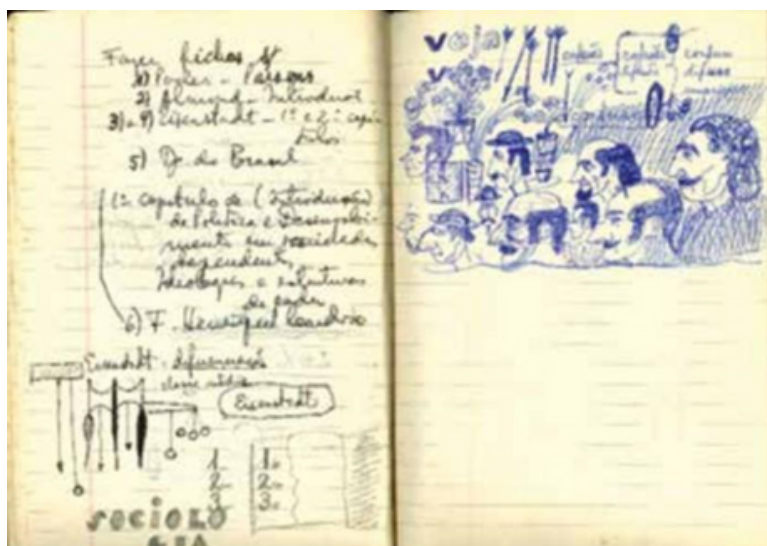 Fazer fichas de
1) Poggier - Parsons
2) Almond - Introdução
3) e 4) Eisenstadt - 1º e 2º capí
tulos
5) Jr. do Brasil
1º capítulo de (Introdução)
de Política e Desenvolvi-
mento em sociedades
dependentes,
Ideologias e estruturas
de poder
6) F. Henrique Cardoso
Eisenstadt - diferenciação
classe média
Eisenstadt
1 1.
2 2.
3 3.
SOCIOLO
GIA
veja
difusas